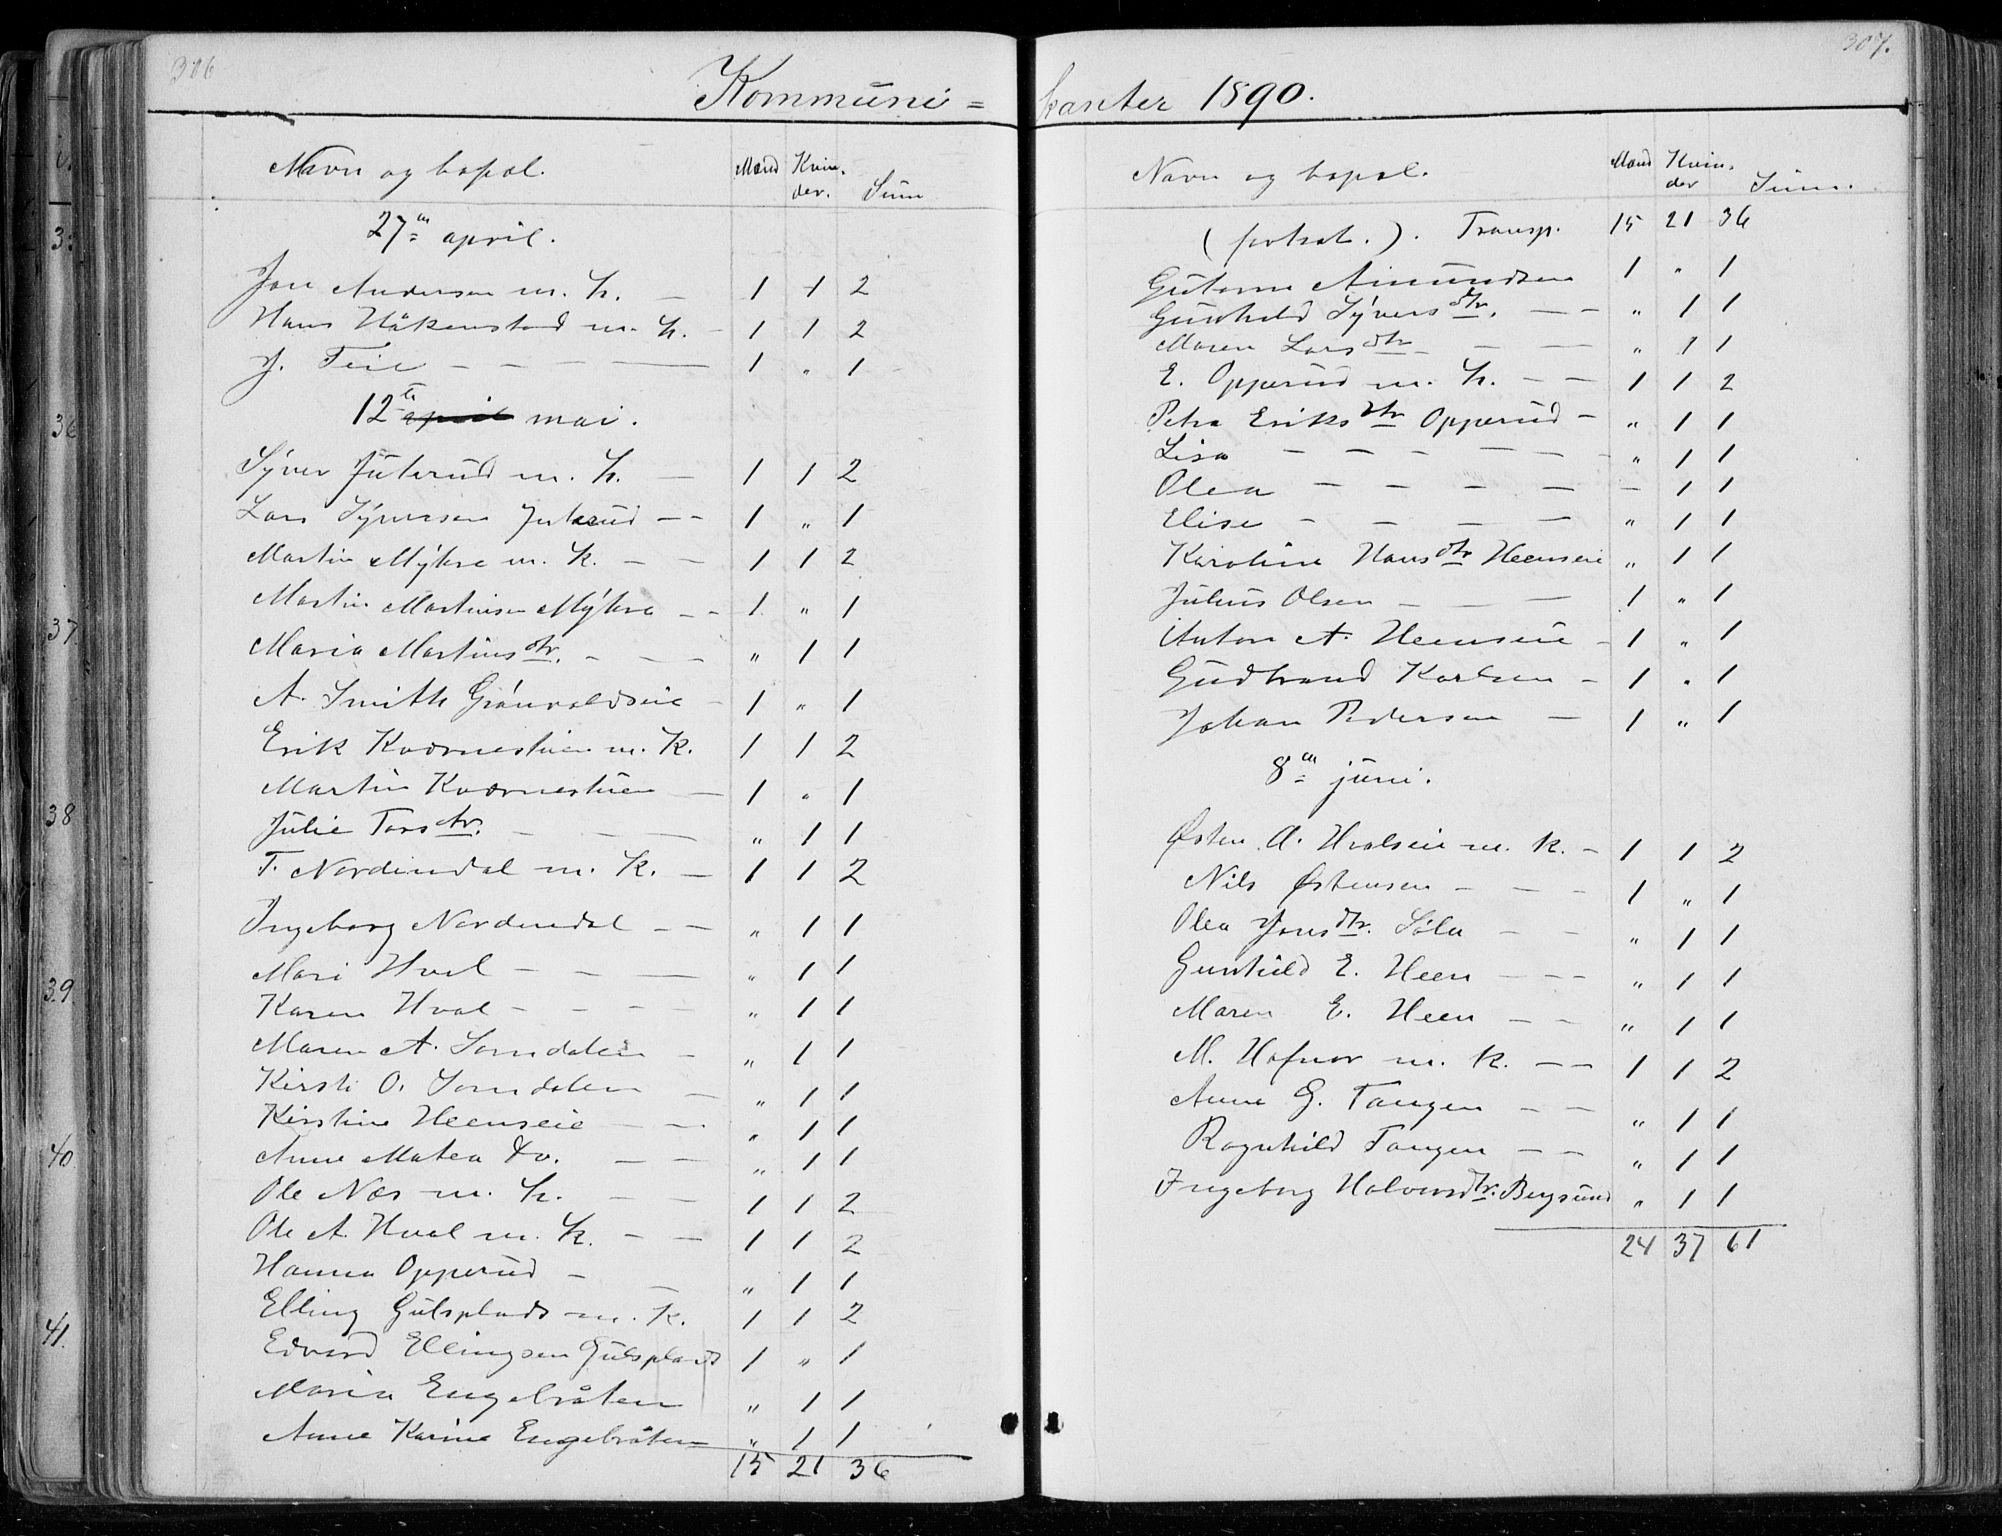 306
Kommuni=
Navn og bopæl. Mænd Kvin-
der. Sum
27de april.
Jon Andersen m. h. — 1 1 2
Hans Håkenstad m. h. - 1 1 2
J. Teie — — — 1 „ 1
12te april mai.
Syver Juterud m. h. — 1 1 2
Lars Syversen Juterud — — 1 „ 1
Martin Myhre m. k. — — 1 1 2
Martin Martinsen Myhre — — 1. „ 1
Maria Martinsdtr. — — — „ 1 1
A. Smith Grønvoldseie - 1 „ 1
Erik Kværnestuen m. k. 1 1 2
Martin Kværnestuen — 1 „ 1
Julie Torsdtr. — — — „ 1 1
T. Nordendal m. k. — 1 1 2
Ingeborg Nordendal — — „ 1 1
Mari Hval — — — „ 1 1
Karen Hval — — — — „ 1 1
Maren A. Somdalen — „ 1 1
Kirsti O. Somdalen — „ 1 1
Kirstine Heenseie — — „ 1 1
Anne Matea do. — — „ 1 1
Ole Næs m. h. — — 1 1 2
Ole A. Hval m. k. — — 1 1 2
Hanna Opperud — — „ 1 1
Elling Gulsplads m. k. 1 1 2
Edvard Ellingsen Gulsplads 1 „ 1
Maria Engebråten „ 1 1
Anne Karine Engebråten „ 1 1
15 21 36
307.
kanter 1890.
Navn og bopæl. Mænd Kvin-
der Sum.
(fortsat.). Transp. 15 21 36
Gutorm Amundsen 1 „ 1
Gunhild Syversdtr. — — „ 1 1
Maren Larsdtr. — — „ 1 1
E. Opperud m. h. — — 1 1 2
Petra Eriksdtr Opperud — „ 1 1
Lisa — — — — — — „ 1 1
Olea — — — — — — 1 1
Elise — — — — „ 1 1
Karoline Hansdtr Heenseie „ 1 1
Julius Olsen — — — 1 „ 1
Anton A. Heenseie — 1 „ 1
Gudbrand Karlsen — 1 „ 1
Johan Pedersen — 1 „ 1
8de juni.
Østen A. Hvalseie m. k. — 1 1 2
Nils Østensen — — — 1 „ 1
Olea Jonsdtr. — — „ 1 1
Gunhild E. Heen — — — „ 1 1
Maren E. Heen — — „ 1 1
M. Hafnor m. k. — — 1 1 2
Anne G. Tangen — — „ 1 1
Ragnhild Tangen — — „ 1 1
Ingeborg Halvorsdtr. Bergsund „ 1 1
24 37 61
36
37
38
39.
40
41.